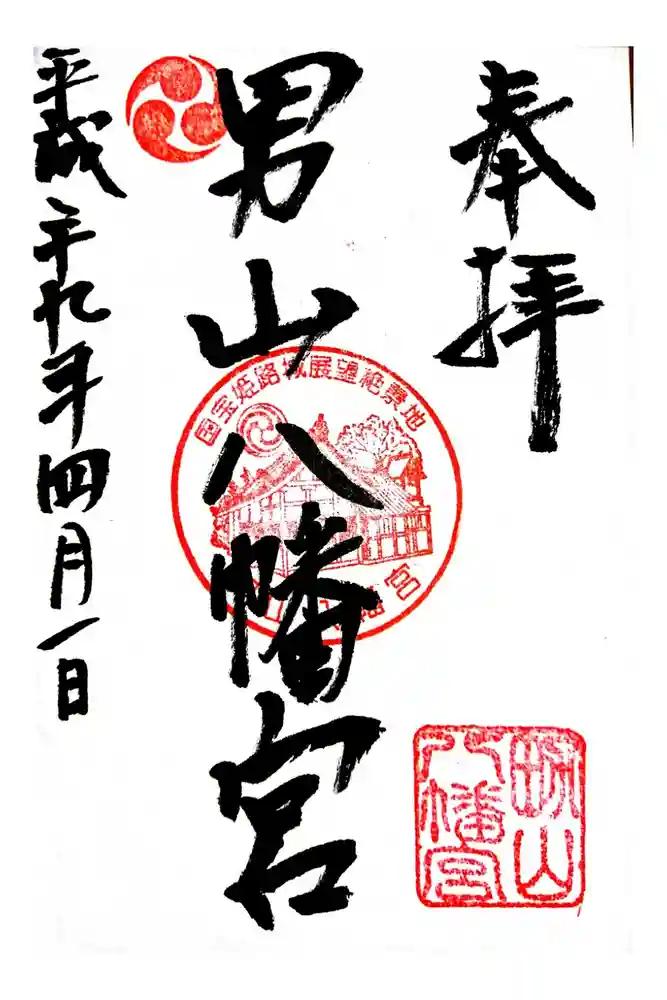 奉拝
男山八幡宮
平成二十九年四月一日
国宝姫路城展望絶景地
山八幡宮
男山
八幡宮